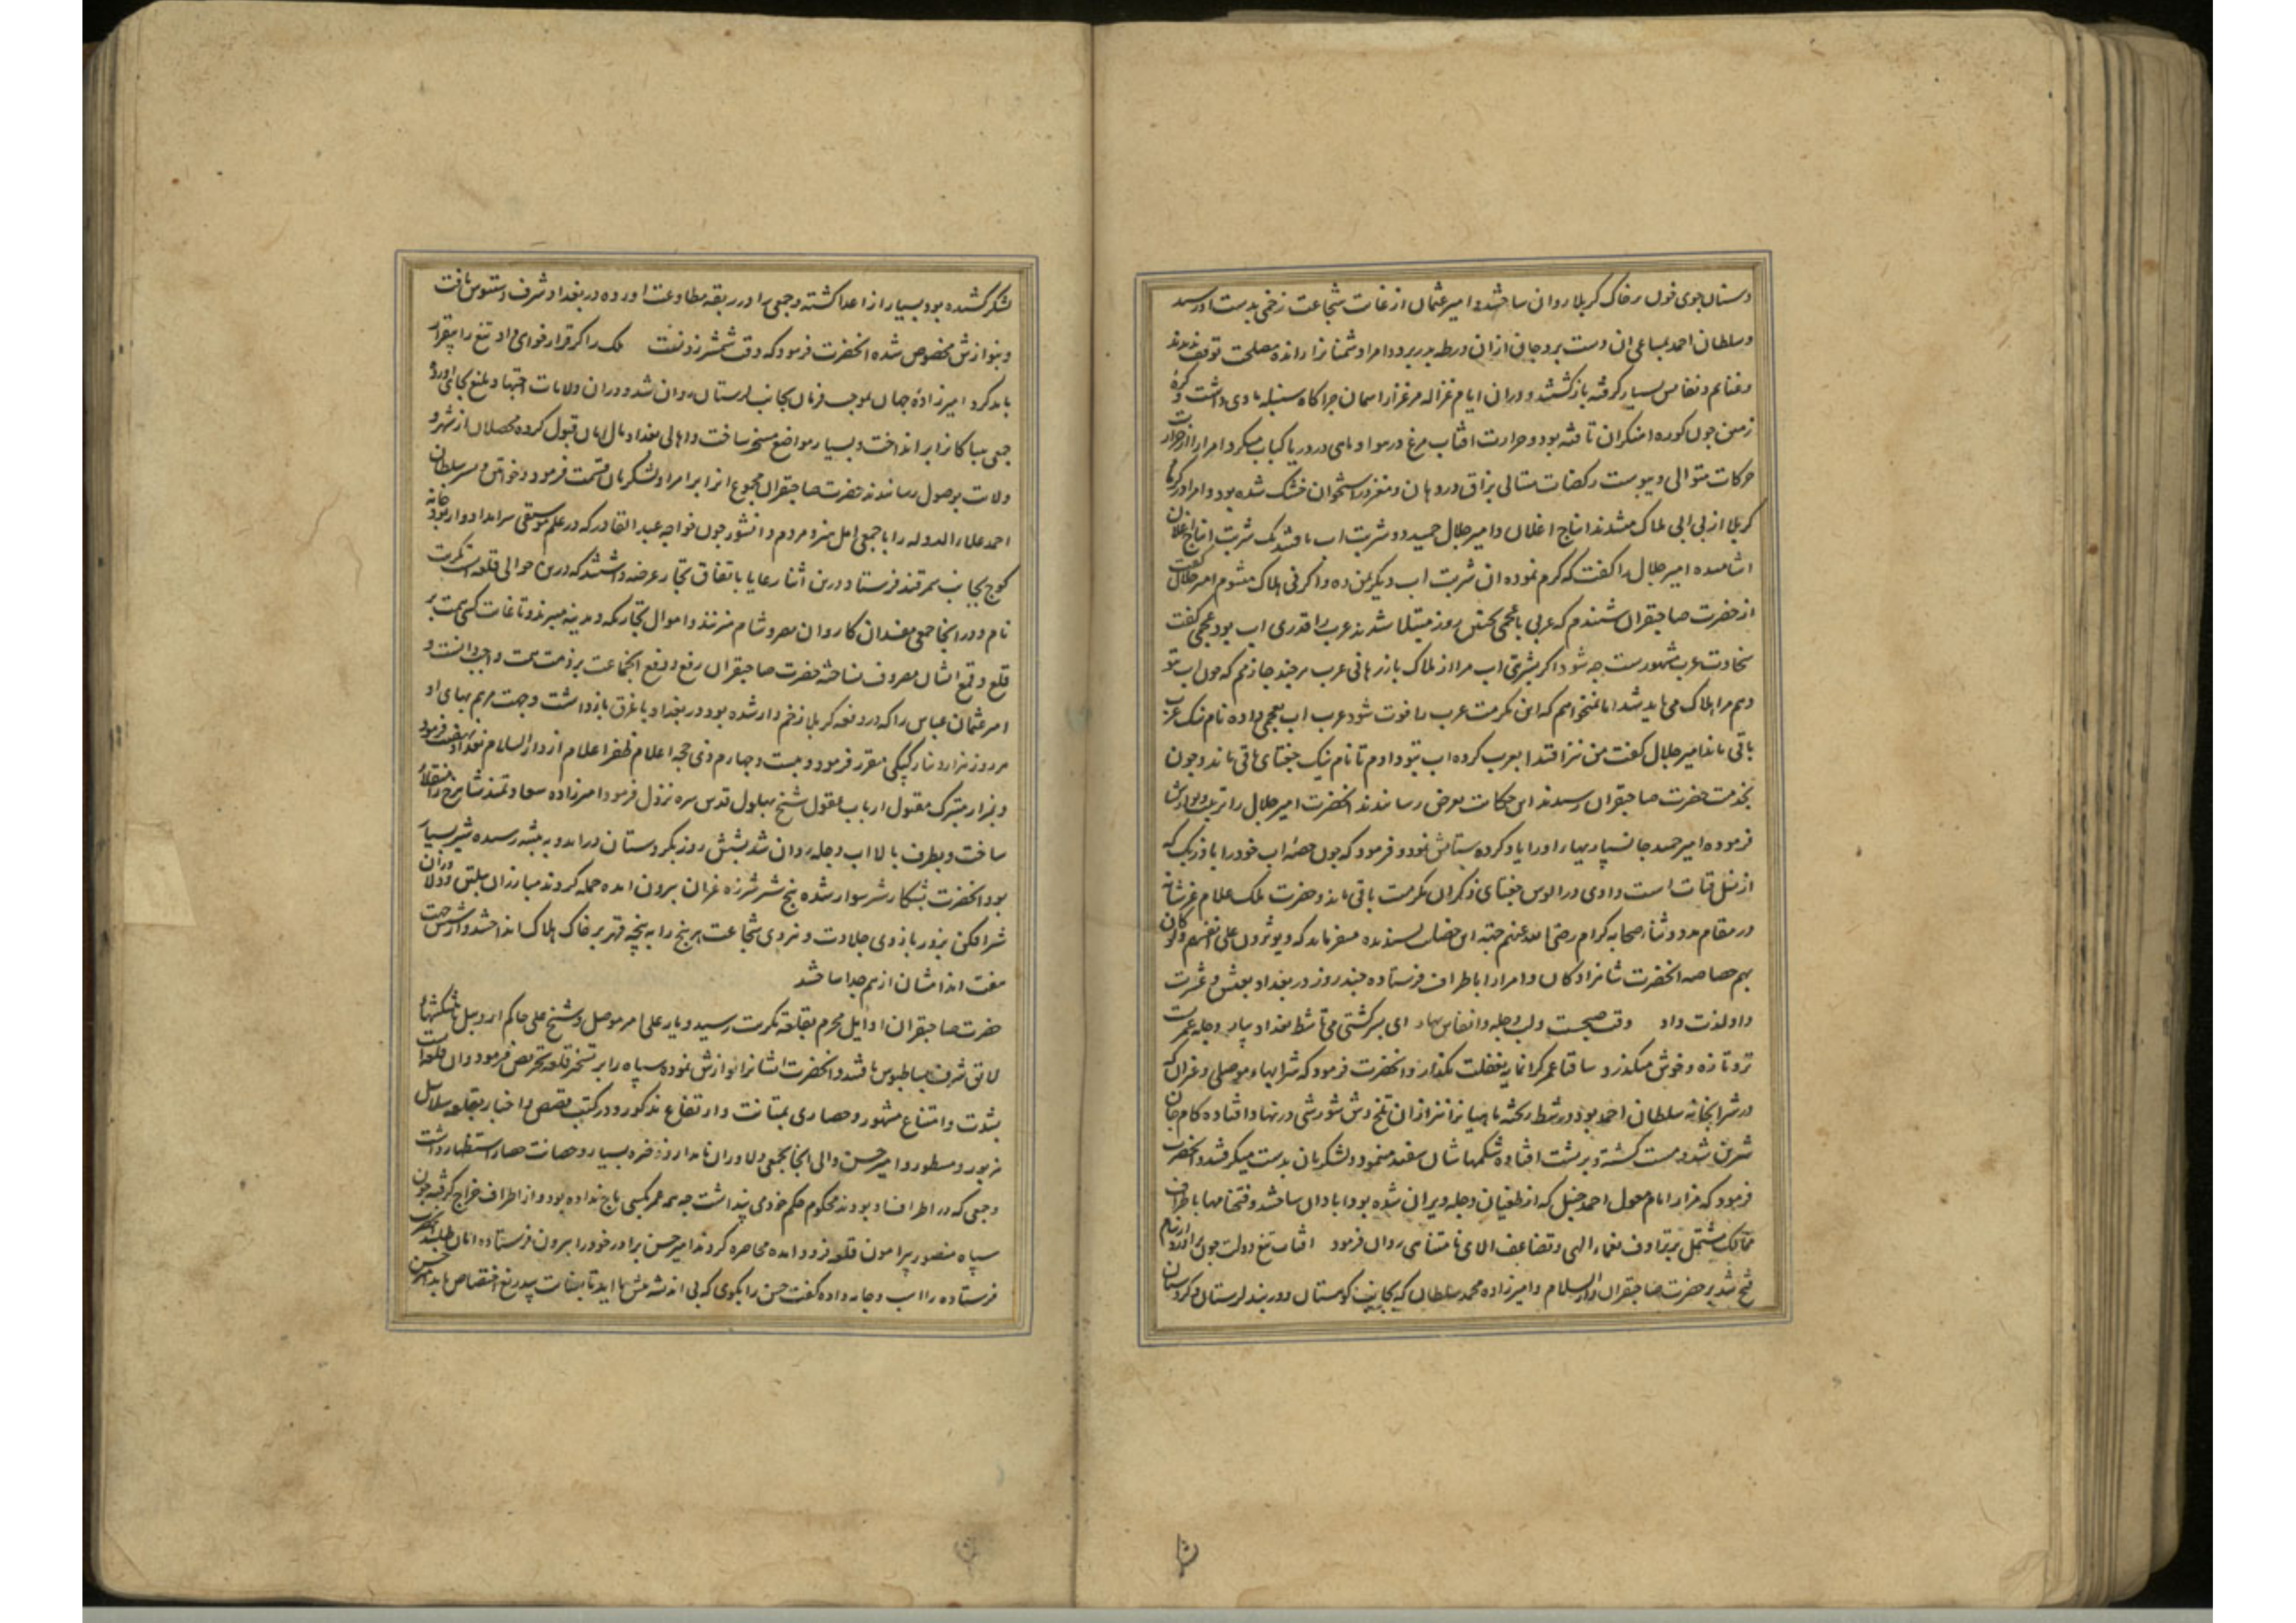 دستان جوی خون بر خاک کربلا روان ساختند و امیر عثمان از غایت شجاعت زخمی بدست او رسید
و سلطان احمد بمساعی آن دست برد جان ازان ورطه بدر برد و امرا دشمنانرا رانده مصلحت توقف ندیدند
و غنایم و نفایس بسیار گرفته بازگشتند و دران ایام غزاله مرغزار آسمان چراگاه سنبله مأوی داشت و کره
زمین چون کوره آهنگران تافته بود و حرارت آفتاب مرغ در هوا و ماهی در دریا کباب میکرد و امرا را از
حرکات متوالی و یبوست رکضات متتالی بزاق در دهان و مغز در استخوان خشک شده بود و امرا در گرمای
کربلا از بی آبی هلاک میشدند ایباج اغلان و امیر جلال حمید دو شربت آب یافتند یک شربت ایباج اغلان
آشامیده امیر جلال را گفت که کرم نموده آن شربت آب دیگر بمن ده و اگر نی هلاک میشوم امیر جلال گفت
از حضرت صاحبقران شنیدم که عربی با عجمی بچنین روز مبتلا شدند عرب را قدری آب بود عجمی گفت
سخاوت عرب مشهورست چه شود اگر بشربتی آب مرا از هلاک باز رهانی عرب هر چند جازمم که چون آب بتو
دهم مرا هلاک می باید شد اما نمیخواهم که این مکرمت عرب را فوت شود عرب آب بعجمی داده نام نیک عرب
باقی ماند امیر جلال گفت من نیز اقتدا بعرب کرده آب بتو دادم تا نام نیک جغتای باقی ماند و چون
بخدمت حضرت صاحبقران رسیدند این حکایت بعرض رسانیدند آنحضرت امیر جلال را تربیت
فرموده امیر حمید جانسپاریهای او را یاد کرده ستایش نمود و فرمود که چون حصه آب خود را با دیگری که
از نسل قاآن است دادی در الوس جغتای ذکر آن مکرمت باقی ماند و حضرت ملک علام عز شانه
در مقام مدح و ثناء صحابه کرام رضی الله عنهم جهت این خصلت پسندیده میفرماید که و یؤثرون علی انفسهم ولو کان
بهم خصاصه آنحضرت شاهزادگان و امرا را باطراف فرستاده چند روز در بغداد بعیش و عشرت
داد لذت داد وقت صبحست و لب دجله و انفاس بهار ای پسر کشتی می تا شط بغداد بیار دجله عمرت
تر و تازه و خوش میگذرد ساقیا عمر گرانمایه بغفلت مگذار و آنحضرت فرمود که شرابهاء موصلی و غیر آن که
در شرابخانه سلطان احمد بود در شط ریخته ماهیانرا نیز ازان تلخ وش شورشی در نهاد افتاده کام جان
شیرین شد و مست گشته و بر پشت افتاده شکمهاشان سفید مینمود و لشکریان بدست میگرفتند و آنحضرت
فرمود که مزار امام احمد حنبل که از طغیان دجله ویران شده بود آبادان ساختند و فتحنامها باطراف
ممالک مشتمل بر ترادف نعماء الهی و تضاعف آلای نامتناهی روان فرمود آفتاب تیغ دولت چون بر آورد از نیام
فتح شد بر حضرت صاحبقران دار السلام و امیرزاده محمد سلطان که بجانب کوهستان و دربند لرستان و کردستان
لشکر کشیده بود بسیار از اعدا کشته و جمعی را در ربقه مطاوعت آورده در بغداد شرف دستبوس یافت
و بنوازش مخصوص شده آنحضرت فرمود که وقت شمشیر زدنت ملک را گر قرار خواهی داد تیغ را بیقرار
باید کرد امیرزاده جهان بموجب فرمان بجانب لرستان روان شد و دران ولایات اجتهاد بلیغ بجای آورد
جمعی بیباکانرا برانداخت و بسیار مواضع مسخر ساخت و اهالی بغداد مال امان قبول کرده محصلان از شهر و
ولایت بوصول رسانیدند حضرت صاحبقران مجموع آنرا بر امرا و لشکریان قسمت فرمود و خواتین و پسر سلطان
احمد علاء الدوله را با جمعی اهل هنر و مردم دانشور چون خواجه عبد القادر که در علم موسیقی سرآمد ادوار بود خانه
کوچ بجانب سمرقند فرستاد و درین اثنا رعایا باتفاق تجار عرضه داشتند که درین حوالی قلعه است تکریت
نام و در انجا جمعی مفسدان کاروان مصر و شام میزنند و اموال تجار مکه و مدینه میبرند و تا غایت کسی همت بر
قلع و قمع ایشان مصروف نساخته حضرت صاحبقران رفع و دفع آنجماعت بر ذمت همت واجب دانست و
امیر عثمان عباس را که در وقعه کربلا زخم دار شده بود در بغداد با غرق بازداشت و جهت مرهم بهای او
هر روز هزار دینار کپکی مقرر فرمود و بیست و چهارم ذی حجه اعلام ظفر اعلام از دار السلام بغداد نهضت فرمود
و بمزار متبرک مقبول ارباب عقول شیخ بهلول قدس سره نزول فرمود امیرزاده سعادتمند شاهرخ را منقلای
ساخت و بطرف بالا آب دجله روان شد بشش روز بکردستان درآمد و به بیشه رسیده شیر بسیار
بود آنحضرت بشکار شیر سوار شده پنج شیر شرزه غران بیرون آمده حمله کردند مبارزان پلتن و دلاوران
شیرافکن بزور بازوی جلادت و نیروی شجاعت هر پنج را به پنجه قهر بر خاک هلاک انداختند و از
هفت اندامشان از هم جدا ساختند
حضرت صاحبقران اوایل محرم بقلعه تکریت رسید و یار علی امیر موصل و شیخ علی حاکم اردبیل با پیشکشهاء
لایق شرف بساطبوس یافتند و آنحضرت ایشانرا نوازش نموده سپاه را بر تسخیر قلعه تحریض فرمود و آن قلعه است
بشدت و امتناع مشهور و حصاری بمتانت و ارتفاع مذکور و در کتب قصص و اخبار بقلعه سلاسل
مزبور و مسطور و امیر حسن والی آنجا بجمعی دلاوران نامدار و ذخیره بسیار و حصانت حصار استظهار داشت
و جمعی که در اطراف او بودند محکوم حکم خود می پنداشت چه همه عمر بکسی باج نداده بود و از اطراف خراج گرفته چون
سپاه منصور پیرامون قلعه فرود آمده محاصره کردند امیر حسن برادر خود را بیرون فرستاده امان طلبید آنحضرت
فرستاده را اسب و جامه داده گفت حسن را بگوی که بی اندیشه پیش ما آید تا بعنایت بیدریغ اختصاص یابد امیر حسن